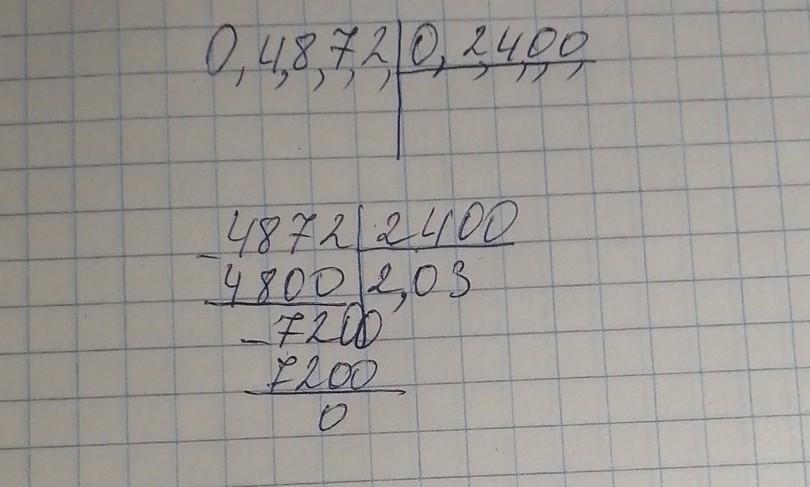 0,4,8,7,2, 0,2,4,0,0,
- 4872 2400
4800 2,03
- 7200
7200
0